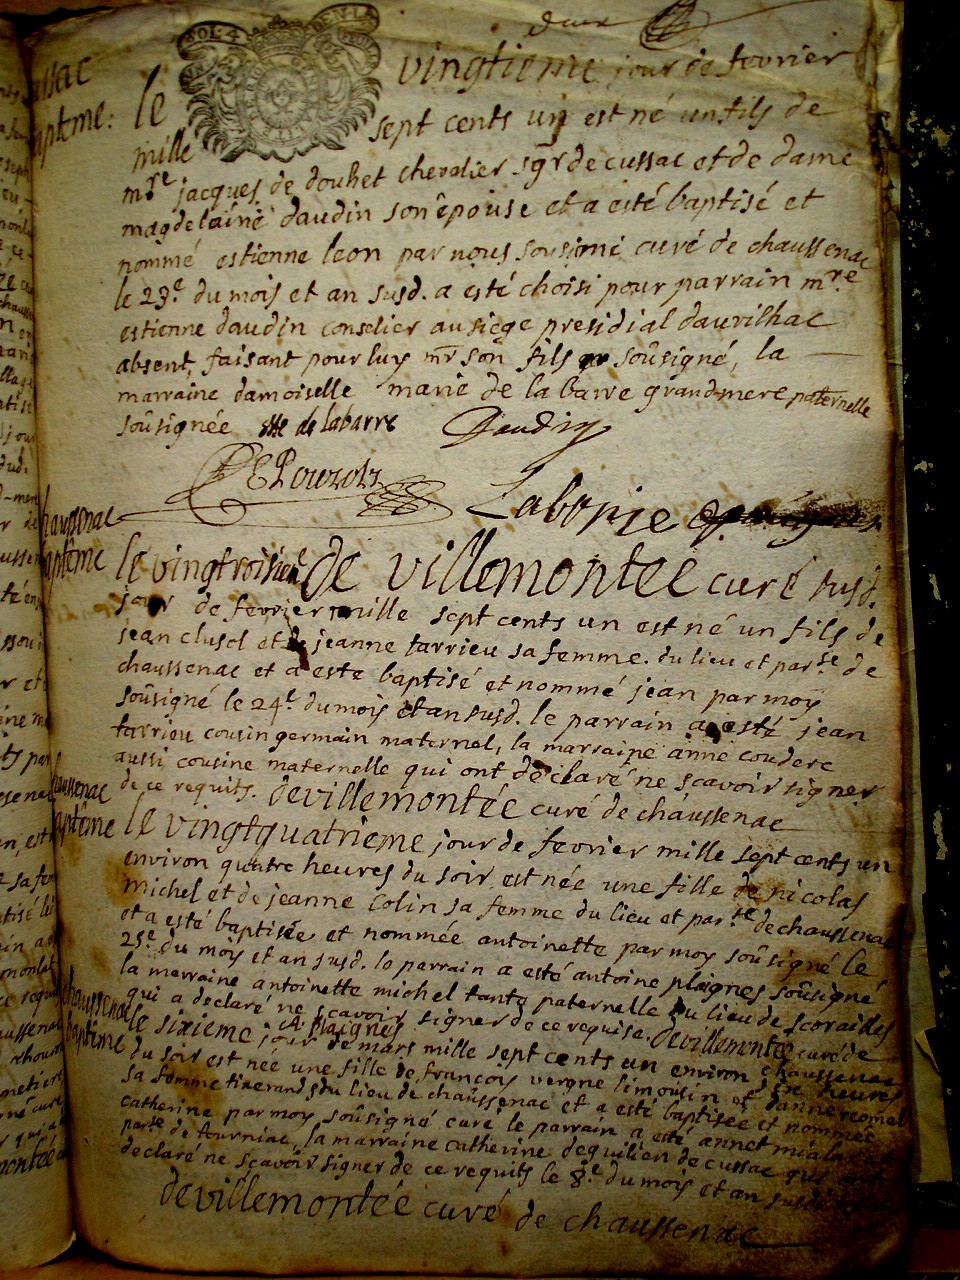 vingtieme jour de fevrier
le
mille sept cents un est né un fils de
mre jacques de douhet chevalier sgr de cussac et de dame
magdelaine daudin son épouse et a esté baptisé et
nommé estienne leon par nous sousigné curé de chaussenac
le 23e du mois et an susd. a esté choisi pour parrain mre
estienne daudin conselier au siege presidial daurilhac
absent, faisant pour luy mr son fils soûsigné, la
marraine damoiselle marie de la barre grandmere paternelle
soûsignée de labarre Daudin
Laborie
chaussenac
baptême
le vingtroisiem de villemontée curé susd.
jour de fevrier mille sept cents un est né un fils de
jean clusol et de jeanne tarrieu sa femme. du lieu et parse de
chaussenac et a este baptisé et nommé jean par moy
soûsigné le 24e du mois et an susd. le parrain a esté jean
tarrieu cousin germain maternel, la marraine anne couderc
aussi cousine maternelle qui ont declaré ne scavoir signer
de ce requits. devillemontée curé de chaussenac
chaussenac
baptême
le vingtquatrieme jour de fevrier mille sept cents un
environ quatre heures du soir est née une fille de nicolas
michel et de jeanne Colin sa femme du lieu et parse de chaussenac
et a esté baptisée et nommée antoinette par moy soûsigné le
25e du mois et an susd. le parrain a esté antoine plaignes soûsigné
la marraine antoinette michel tante paternelle du lieu de scorailles
qui a declaré ne scavoir signer de ce requise. devillemontée curé de
A. plaignes chaussenac
chaussenac
baptême
le sixieme jour de mars mille sept cents un environ heures
du soir est née une fille de françois vergne limousin et
sa femme du lieu de chaussenac et a esté baptisée et nommée
catherine par moy soûsigné curé le parrain a esté annet
parse de tourniac, la marraine catherine dequilien de cussac qui ont
declaré ne scavoir signer de ce requits le 8e du mois et an susd.
devillemontée curé de chaussenac